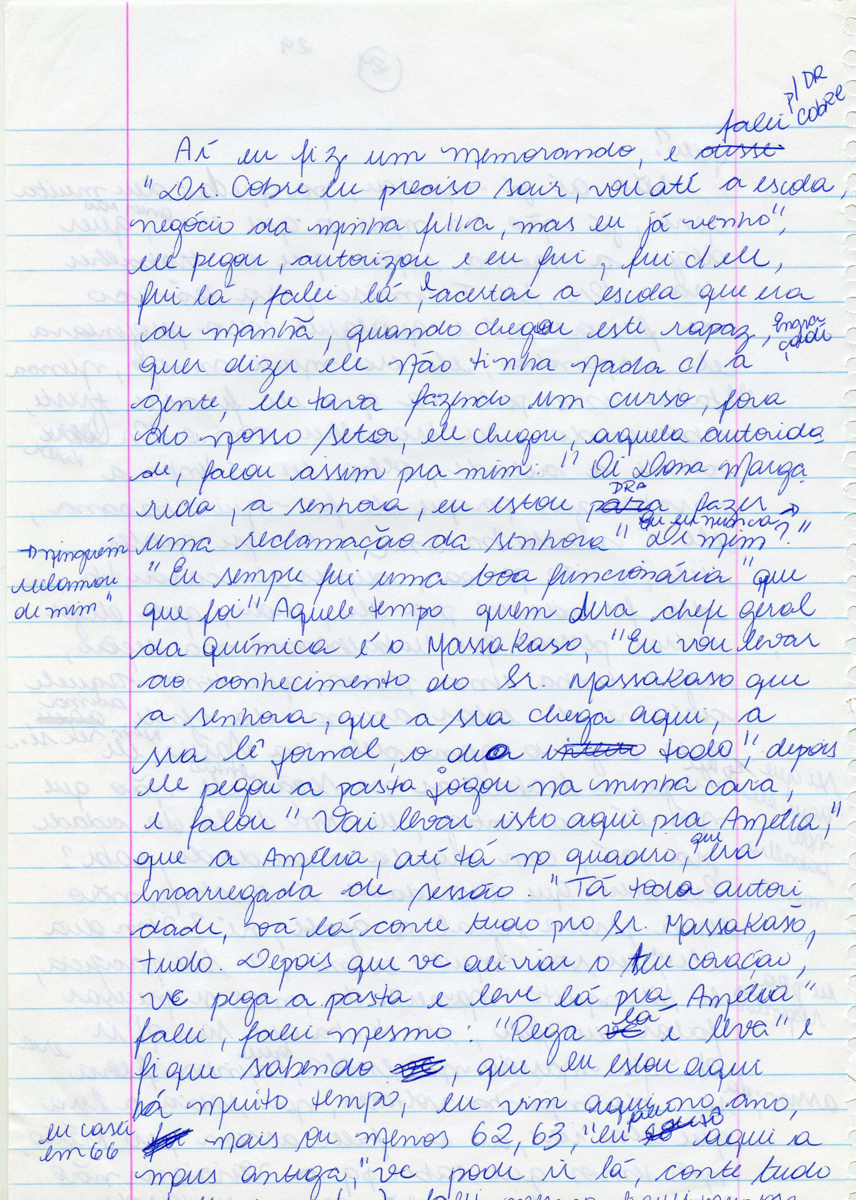 p/ DR
falei COBRE
Aí eu fiz um memorando, e disse
"Dr. Cobre eu preciso sair, vou até a escola,
negócio da minha filha, mas eu já venho",
ele pegou, autorizou e eu fui, fui c/ ele,
fui lá, falei lá, e acertar a escola que era
de manhã, quando chegou este rapaz, engra
çado
quer dizer ele não tinha nada c/ a
gente, ele tava fazendo um curso, fora
do nosso setor, ele chegou, aquela autorida
de, falou assim pra mim: "Oi Dona Marga
rida, a senhora, eu estou para DRA fazer →
uma reclamação da senhora" "De mim?"
que eu nunca →
→ ninguém
reclamou
de mim"
"Eu sempre fui uma boa funcionária" "que
que foi" Aquele tempo quem era chefe geral
da química é o Massakaso, "Eu vou levar
ao conhecimento do Sr. Massakaso que
a senhora, que a sra chega aqui, a
sra lê jornal, o dia inteiro todo", depois
ele pegou a pasta jogou na minha cara,
e falou "Vai levar isto aqui pra Amélia,"
que a Amélia, até tá no quadro, que era
encarregada de sessão. "Tá toda autori
dade, vá lá conte tudo pro Sr. Massakaso,
tudo. Depois que vc aliviar o teu coração,
vc pega a pasta e leve lá pra Amélia"
falei, falei mesmo: "Pega vc lá e leva" e
fique sabendo, que eu estou aqui
há muito tempo, eu vim aqui no ano,
eu casei
em 66
mais ou menos 62, 63 "eu aqui a
mais antiga," vc pode ir lá, conte tudo